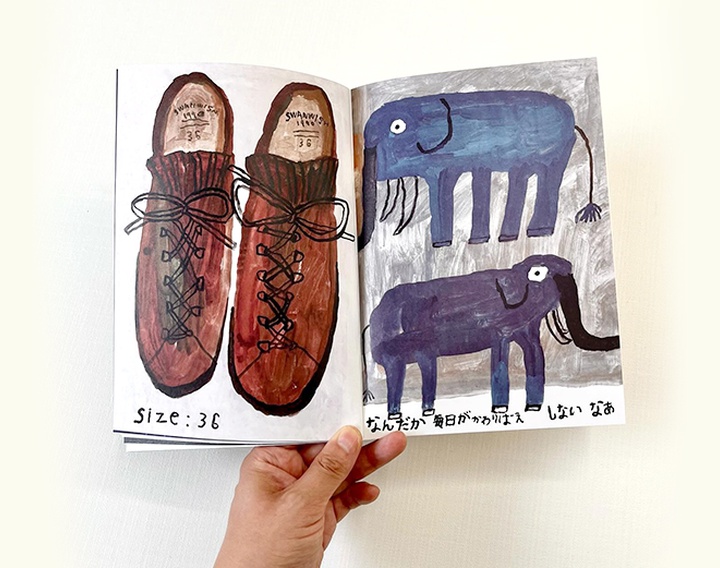 SWANWISH
1990
36
SWANWISH
1990
36
size: 36
なんだか 毎日が かわりばえ しない なあ